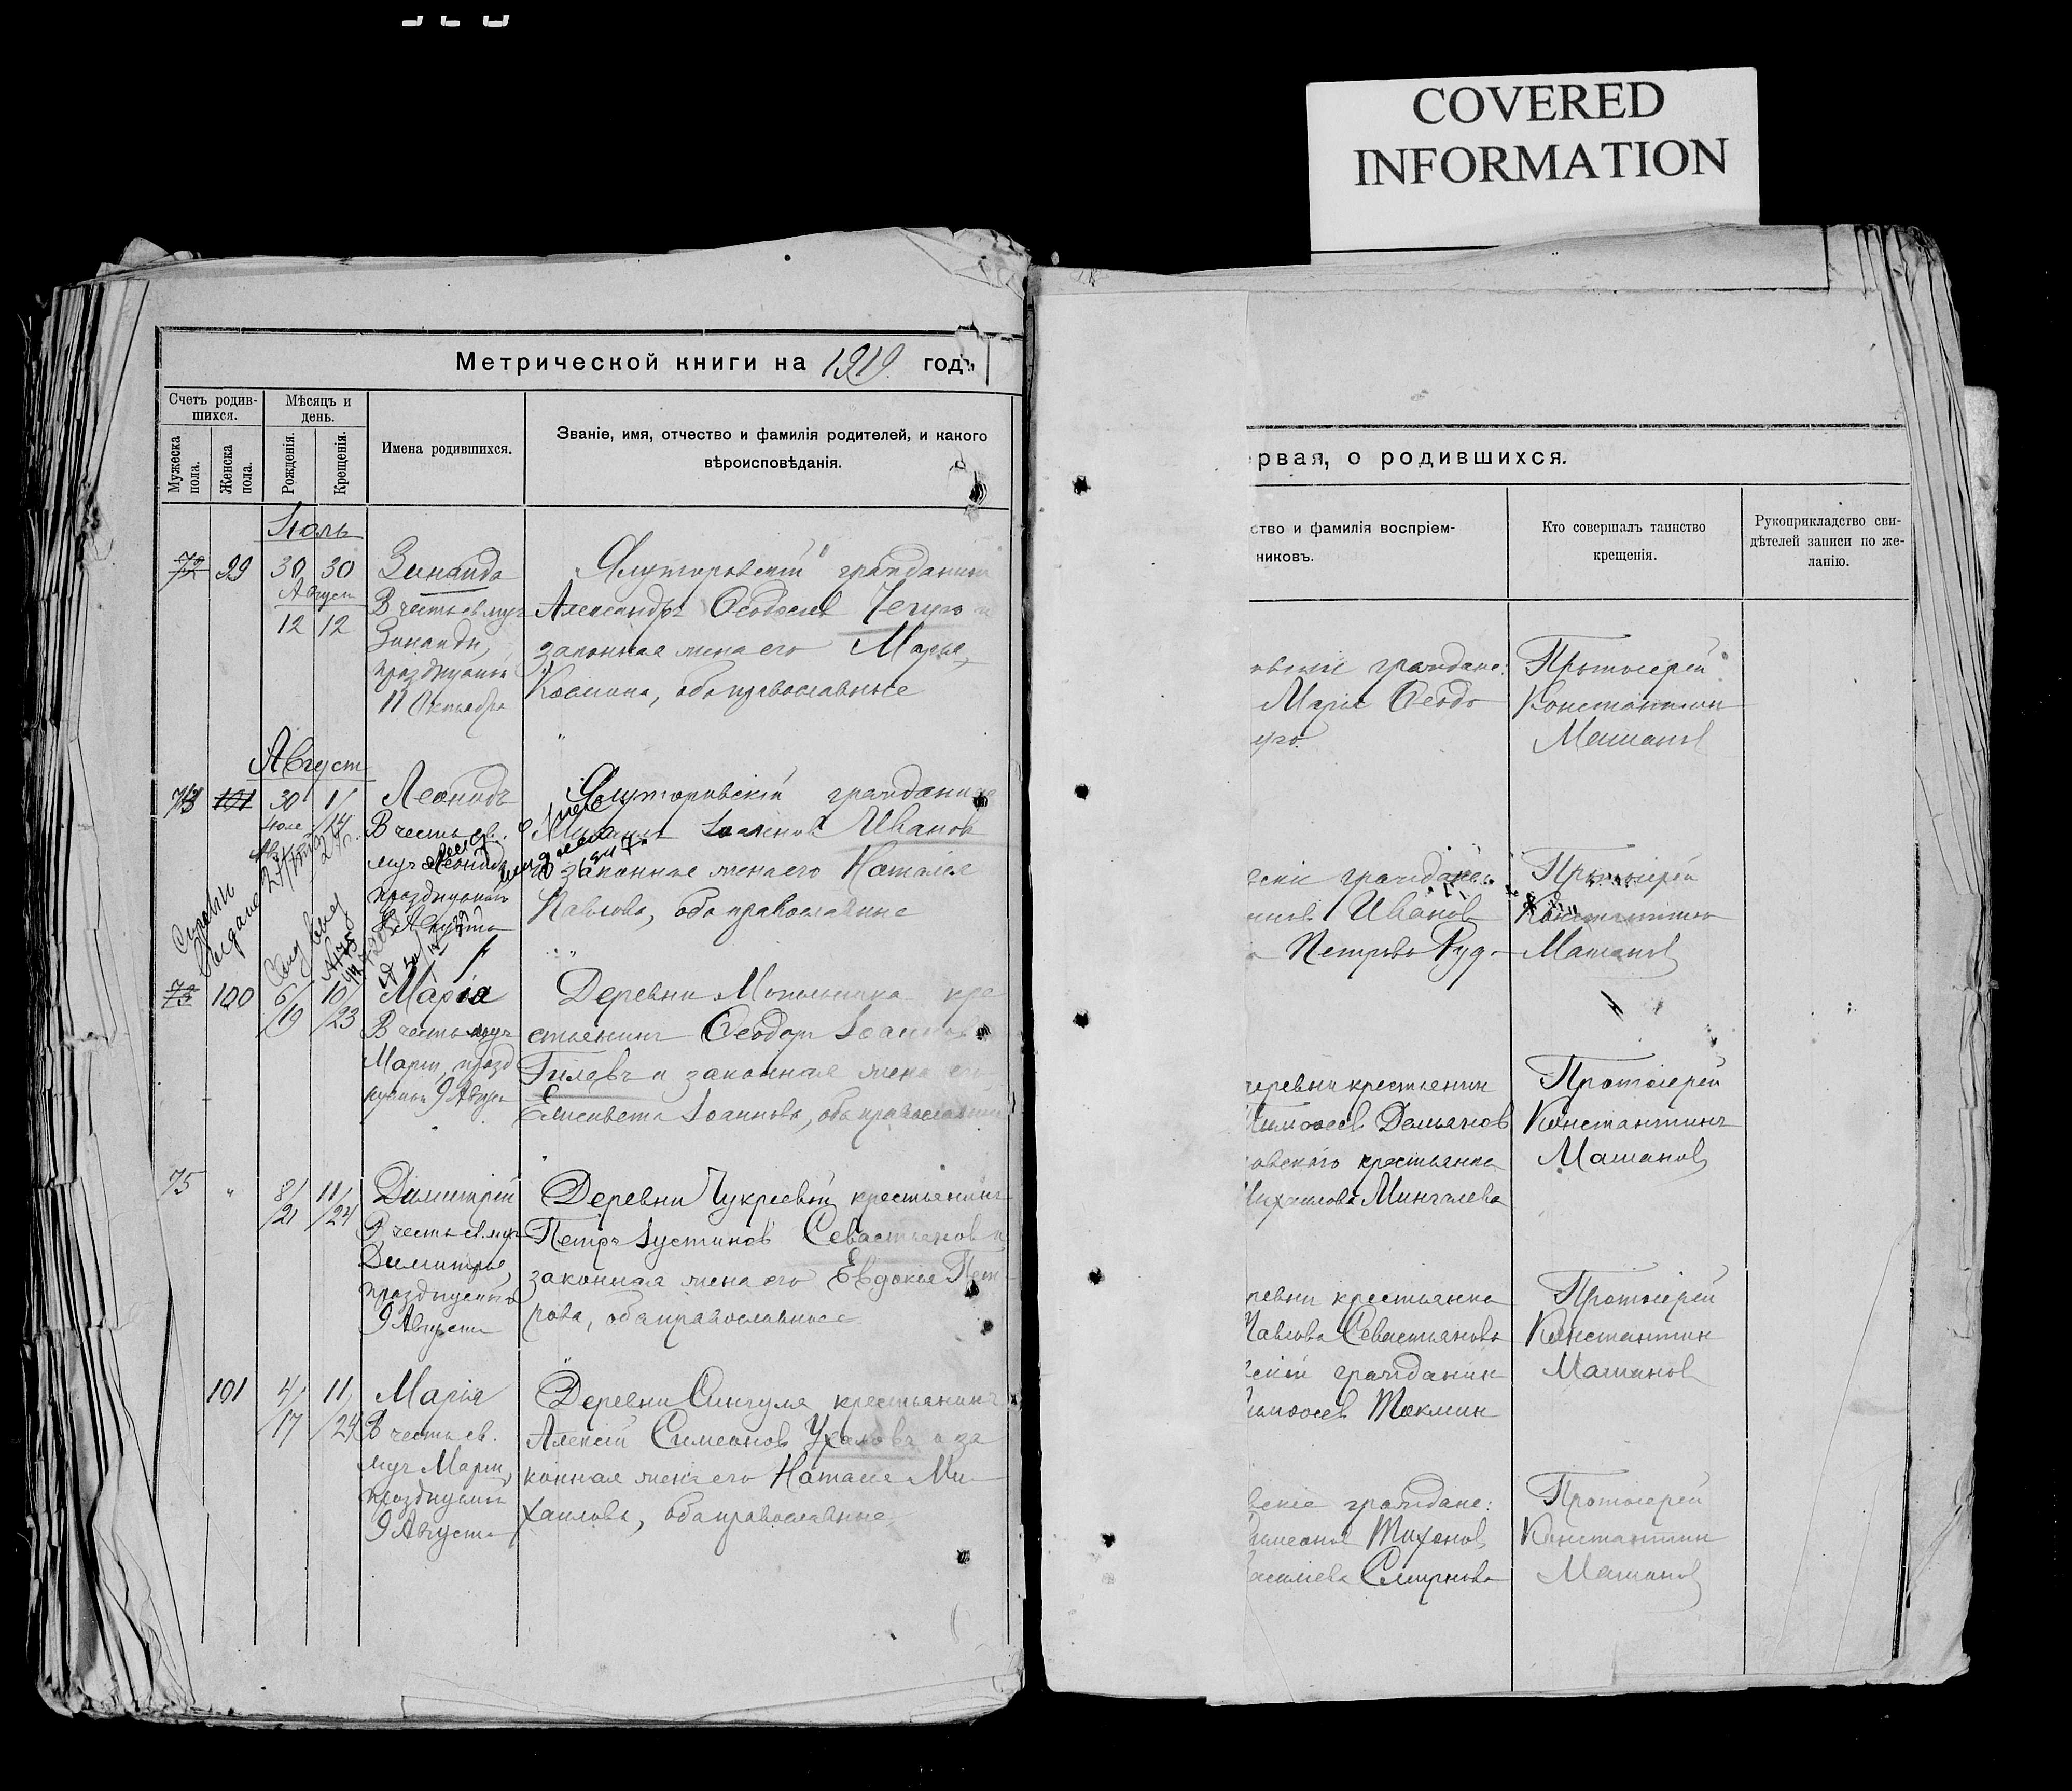 COVERED
INFORMATION
Метрической книги на 1919 годъ
Счетъ родив-
шихся.
Мѣсяцъ и
день.
Мужеска
пола.
Женска
пола.
Рожденія.
Крещенія.
Имена родившихся.
Званіе, имя, отчество и фамилія родителей, и какого
вѣроисповѣданія.
Іюль
72 99 30 30
Август
12 12
Зинаида
В честь св. муч.
Зинаиды,
празднуемой
11 Октября
Ялуторовскій гражданин
Александръ Ѳеодосіев и
законная жена его Марія
Космина, оба православные
Август
101 30 1/
Іюля /14
Леонидъ
В честь св.
муч Леонида,
празднуемаго
Августа
Ялуторовскій гражданин
Іоаннов Иванов
и законная жена его Наталія
Павлова, оба православные
73 100 6/ 10/
/19 /23
Марія
В честь муч
Маріи, празд
нуемой 9 Август
Деревни крe
стьянинъ Ѳеодоръ Іоаннов
Гилевъ и законная жена его
Елисавета Іоаннова, оба православные
75 " 8/ 11/
/21 /24
Димитрій
В честь св. муч
Димитрія,
празднуемаго
9 Августа
Деревни Чукреевой крестьянинъ
Петръ Іустинов Севастьянов и
законная жена его Евдокія Пет-
рова, оба православные
101 4/ 11/
/17 /24
Марія
В честь св.
муч Маріи,
празднуемой
9 Августа
Деревни Сингуля крестьянинъ
Алексій Симеонов Ухаловъ и за
конная жена его Наталія Ми-
хаилова, оба православные
рвая, о родившихся.
ство и фамилія воспріем-
никовъ.
Кто совершалъ таинство
крещенія.
Рукоприкладство сви-
дѣтелей записи по же-
ланію.
овскіе граждане:
Марія Ѳеодо
Протоіерей
Константин
Машанов
скіе граждане:
Иванов
Петрова Руд-
Протоіерей
Константин
Машанов
деревни крестьянин
Тимоѳеев Демьянов
овского крестьянка
Михаилова Мингалева
Протоіерей
Константинъ
Машанов
ревни крестьянка
Павлова Севастьянова
скій гражданин
Тимоѳеев Токмин
Протоіерей
Константин
Машанов
вскіе граждане:
Симеонов Тихонов
Василіева Смирнова
Протоіерей
Константин
Машанов